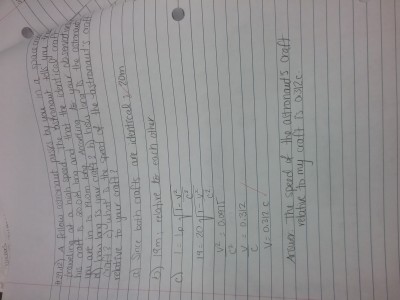 A fellow astronaut passes by you in a spacecraft
traveling at a high speed. The astronaut tells you that
the craft is 20.0m long and that the identical craft
you are in is 19.0m long. According to your observations,
a) how long is your craft? b) how long is the astronaut's craft
c) what is the speed of the astronaut's craft
relative to your craft?
a) Since both crafts are identical = 20m
b) 19m, relative to each other
c) L = Lp √1 - v²/c²
19 = 20 √1 - v²/c²
v²/c² = 0.0975
v/c = 0.312
v = 0.312 c
Answer: The speed of the astronaut's craft
relative to my craft is 0.312c